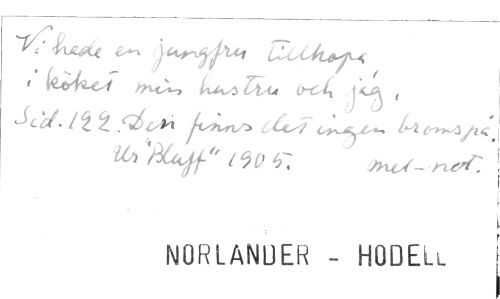 Vi hade en jungfru tillhopa
i köket min hustru och jag.
Sid. 122. Den finns det ingen broms på.
Ur "Bluff" 1905. mel-not.
NORLANDER - HODELL